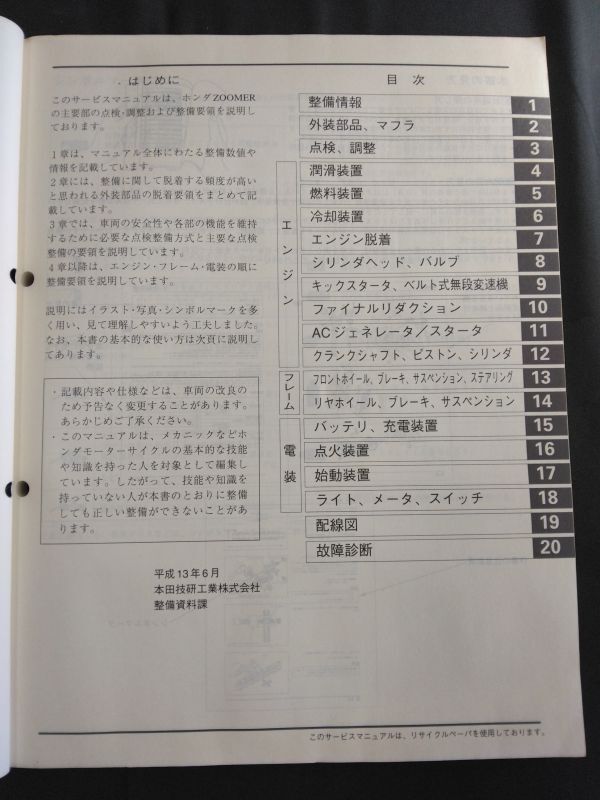 はじめに
このサービスマニュアルは、ホンダZOOMER
の主要部の点検・調整および整備要領を説明し
ております。
1章は、マニュアル全体にわたる整備数値や
情報を記載しています。
2章には、整備に関して脱着する頻度が高い
と思われる外装部品の脱着要領をまとめて記
載しています。
3章では、車両の安全性や各部の機能を維持
するために必要な点検整備方式と主要な点検
整備の要領を説明しています。
4章以降は、エンジン・フレーム・電装の順に
整備要領を説明しています。
説明にはイラスト・写真・シンボルマークを多
く用い、見て理解しやすいよう工夫しました。
なお、本書の基本的な使い方は次頁に説明し
てあります。
・記載内容や仕様などは、車両の改良の
ため予告なく変更することがあります。
あらかじめご了承ください。
・このマニュアルは、メカニックなどホ
ンダモーターサイクルの基本的な技能
や知識を持った人を対象として編集し
ています。したがって、技能や知識を
持っていない人が本書のとおりに整備
しても正しい整備ができないことがあ
ります。
平成13年6月
本田技研工業株式会社
整備資料課
目 次
整備情報 1
外装部品、マフラ 2
点検、調整 3
エンジン
潤滑装置 4
燃料装置 5
冷却装置 6
エンジン脱着 7
シリンダヘッド、バルブ 8
キックスタータ、ベルト式無段変速機 9
ファイナルリダクション 10
ACジェネレータ／スタータ 11
クランクシャフト、ピストン、シリンダ 12
フレーム
フロントホイール、ブレーキ、サスペンション、ステアリング 13
リヤホイール、ブレーキ、サスペンション 14
電装
バッテリ、充電装置 15
点火装置 16
始動装置 17
ライト、メータ、スイッチ 18
配線図 19
故障診断 20
このサービスマニュアルは、リサイクルペーパを使用しております。